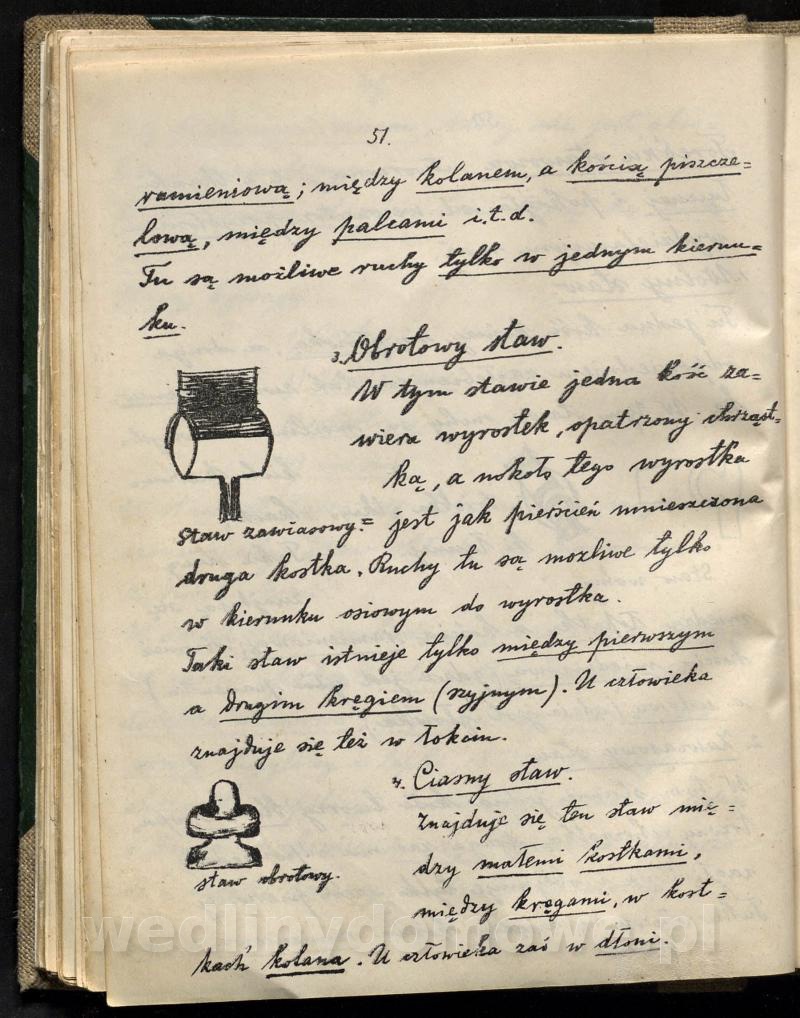 51.
ramieniową; między kolanem, a kością piszcze=
lową, między palcami i.t.d.
Tu są możliwe ruchy tylko w jednym kierun=
ku.
3. Obrotowy staw.
W tym stawie jedna kość za=
wiera wyrostek, opatrzony chrząst=
ką, a nokoło tego wyrostka
staw zawiasowy.= jest jak pierścień umieszczona
druga kostka. Ruchy tu są możliwe tylko
w kierunku osiowym do wyrostka.
Taki staw istnieje tylko między pierwszym
a drugim kręgiem (szyjnym). U człowieka
znajduje się też w łokciu.
4. Ciasny staw.
Znajduje się ten staw mię=
dzy małemi kostkami,
staw obrotowy.
między kręgami, w kost=
kach kolana. U człowieka zaś w dłoni.
wedlinydomowe.pl